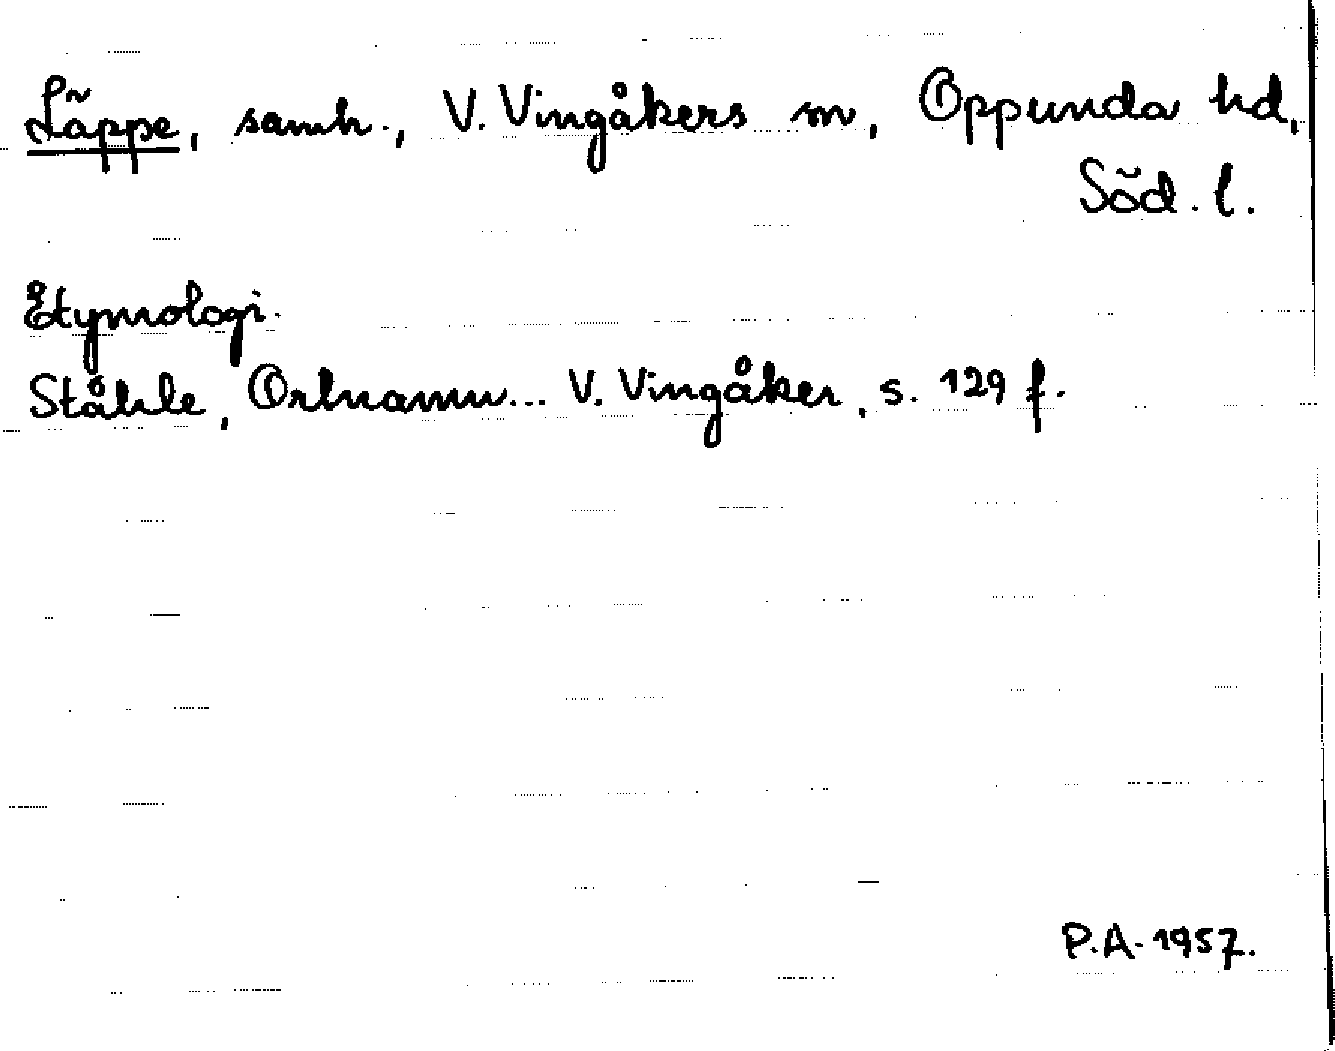 Läppe, samh., V. Vingåkers sn, Oppunda hd,
Söd. l.
Etymologi.
Ståhle, Ortnamn... V. Vingåker, s. 129 f.
P.A. 1957.